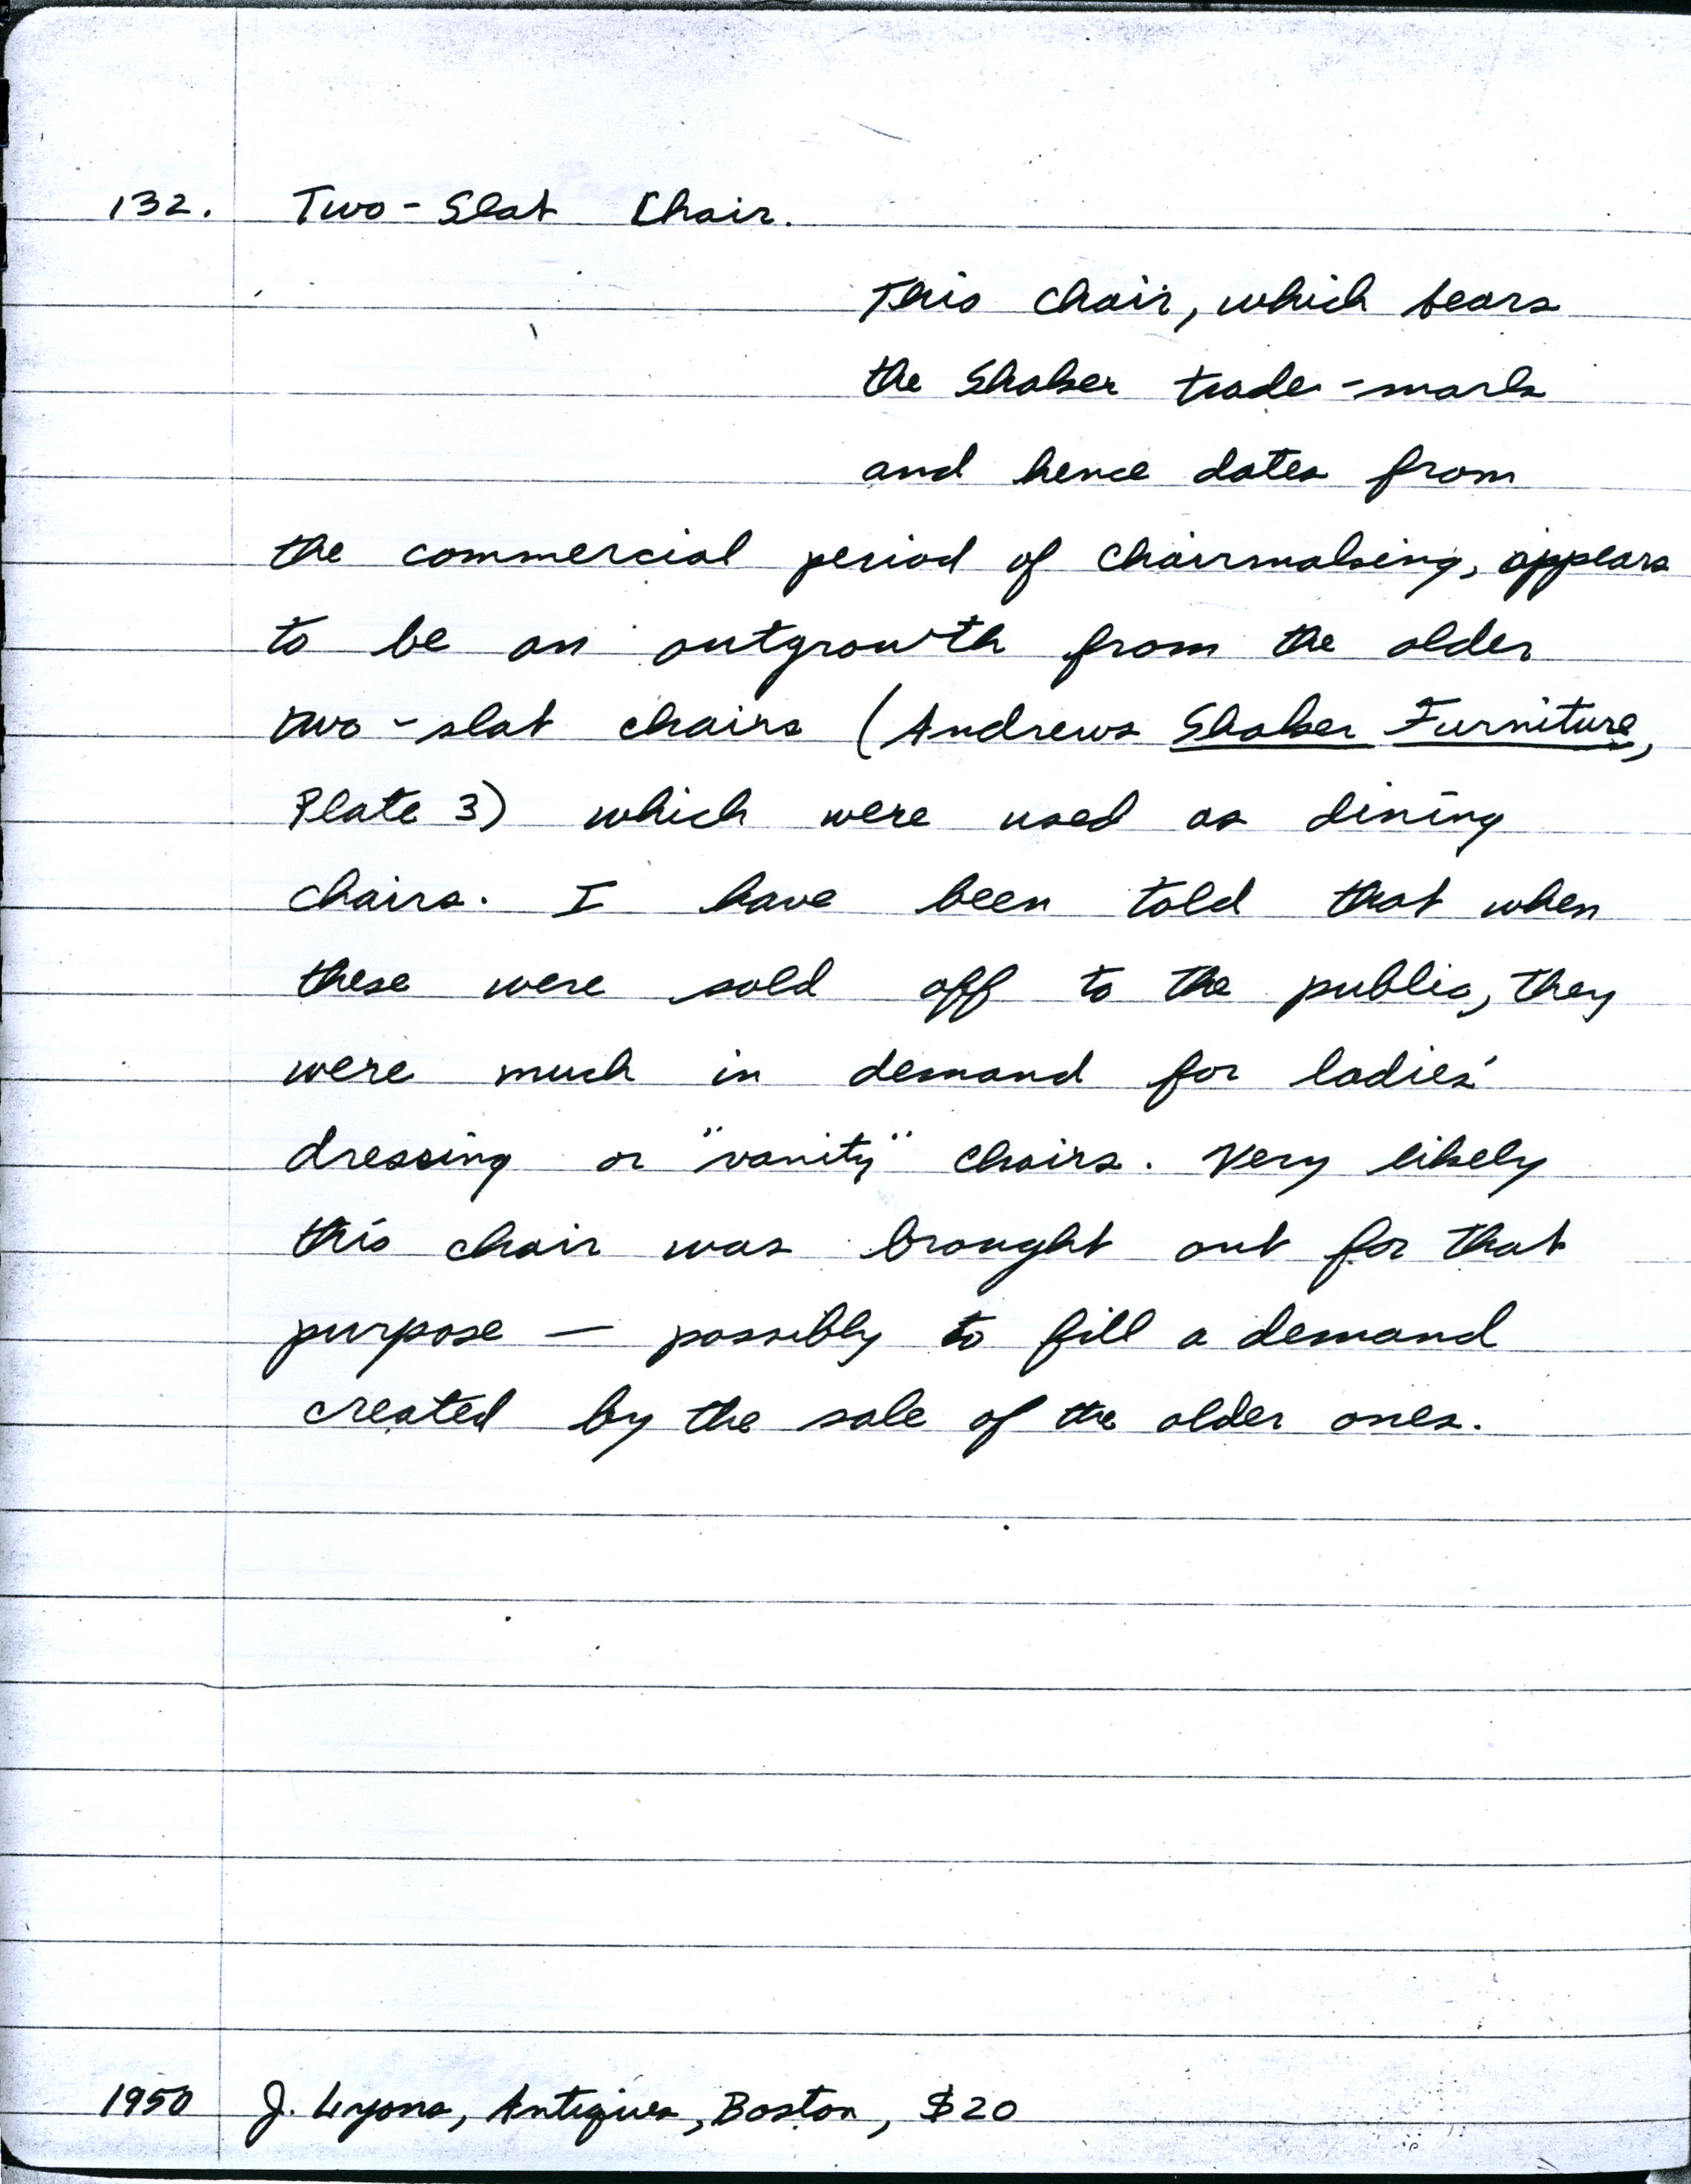 132. Two-Slat Chair.
This chair, which bears
the Shaker trade-mark
and hence dates from
the commercial period of chairmaking, appears
to be an outgrowth from the older
two-slat chairs (Andrews Shaker Furniture,
Plate 3) which were used as dining
chairs. I have been told that when
these were sold off to the public, they
were much in demand for ladies'
dressing or "vanity" chairs. Very likely
this chair was brought out for that
purpose — possibly to fill a demand
created by the sale of the older ones.
1950 J. Lyons, Antiques, Boston, $20